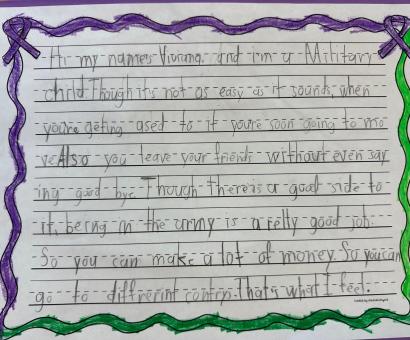 Hi my names Viviana. and i'm a Military
child Though it's not as easy as it sounds, when
you're geting ased to it you're soon going to mo
ve Also you leave your friends without even say
ing good bye. Though there is a good side to
it, being in the army is a relly good job.
So you can make a lot of money. So you can
go to diffrerint contrys. That's what I feel.